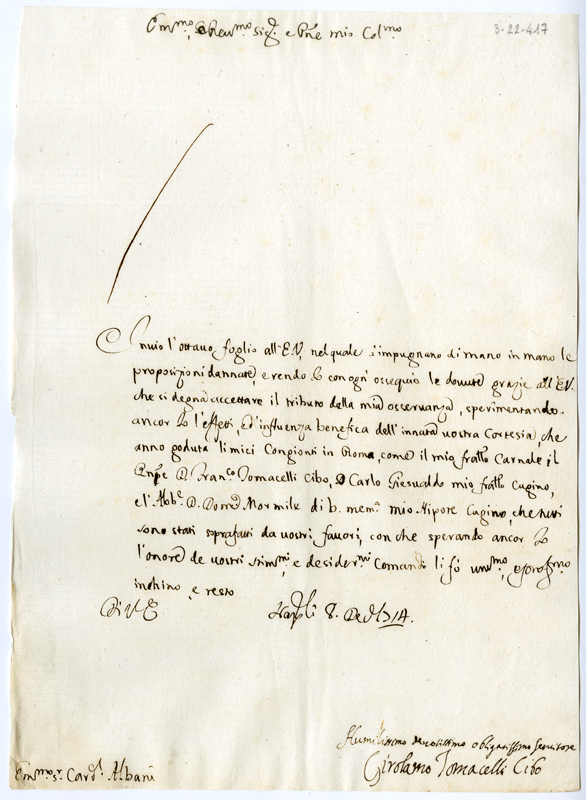 Em.mo, e Rev.mo Sig.r e P̄ne mio Col.mo
3-22-417
Invio l'ottavo foglio all'E.V., nel quale s'impugnano di mano in mano le
proposizioni dannate, e rendo Io con ogn' ossequio le dovute grazie all'E.V.
che si degna accettare il tributo della mia osservanza, sperimentando
ancor Io l'effetti, ed'influenza benefica dell'innata vostra Cortesia, che
anno goduta li miei Congionti in Roma, come il mio fratto Carnale il
Pn̄pe D. Fran.co Tomacelli Cibo, D. Carlo Giesualdo mio fratto Cugino,
e l'Abb.e D. Dom.co Mormile di b. mem.a mio Nipote Cugino, che tutti
sono stati soprafatti da vostri favori, con che sperando ancor Io
l'onore de vostri stim.mi, e desider.mi Comandi li fò um.mo, e prof.mo
inchino, e resto
Di V.E.
Nap.li 8. Dec. 1714.
Humilissimo Devotissimo Obligatissimo Servitore
Girolamo Tomacelli Cibo
Em.mo Sr. Card.l Albani